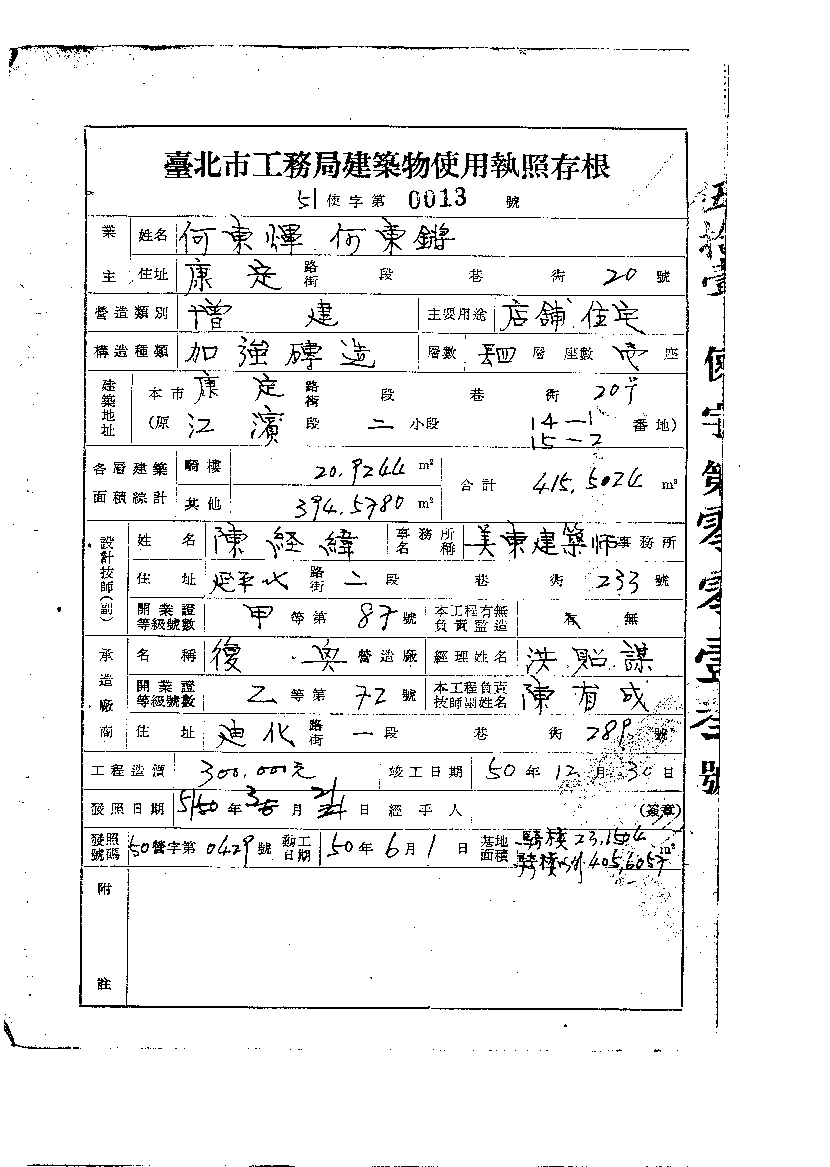 臺北市工務局建築物使用執照存根
51使字第 0013 號
業主 姓名 何東輝 何東鏘
住址 康定 路街 段 巷 街 20 號
營造類別 增建 主要用途 店舖住宅
構造種類 加強磚造 層數 四 層 座數 壱 座
建築地址 本市 康定 路街 段 巷 街 20号
(原 江濱 段 二 小段 14-1 15-2 番地)
各層建築面積綜計 騎樓 20.9244 m² 合計 415.5024 m²
其他 394.5780 m²
設計技師(副) 姓名 陳経緯 事務所名稱 美東建築師事務所
住址 延平北 路街 二段 巷 街 233 號
開業證等級號數 甲 等第 87 號 本工程有無負責監造 有 無
承造廠商 名稱 復興 營造廠 經理姓名 洪貽謀
開業證等級號數 乙 等第 72 號 本工程負責技師副姓名 陳有成
住址 迪化 路街 一段 巷 街 289 號
工程造價 300.000元 竣工日期 50年12月30日
發照日期 51 年 3 月 日 經手人 (簽章)
發照號碼 50營字第0429號 動工日期 50年6月1日 基地面積 騎楼 23.1504
騎楼以外 405.6057 m²
附註
伍拾壹 使字第零零壹叁號